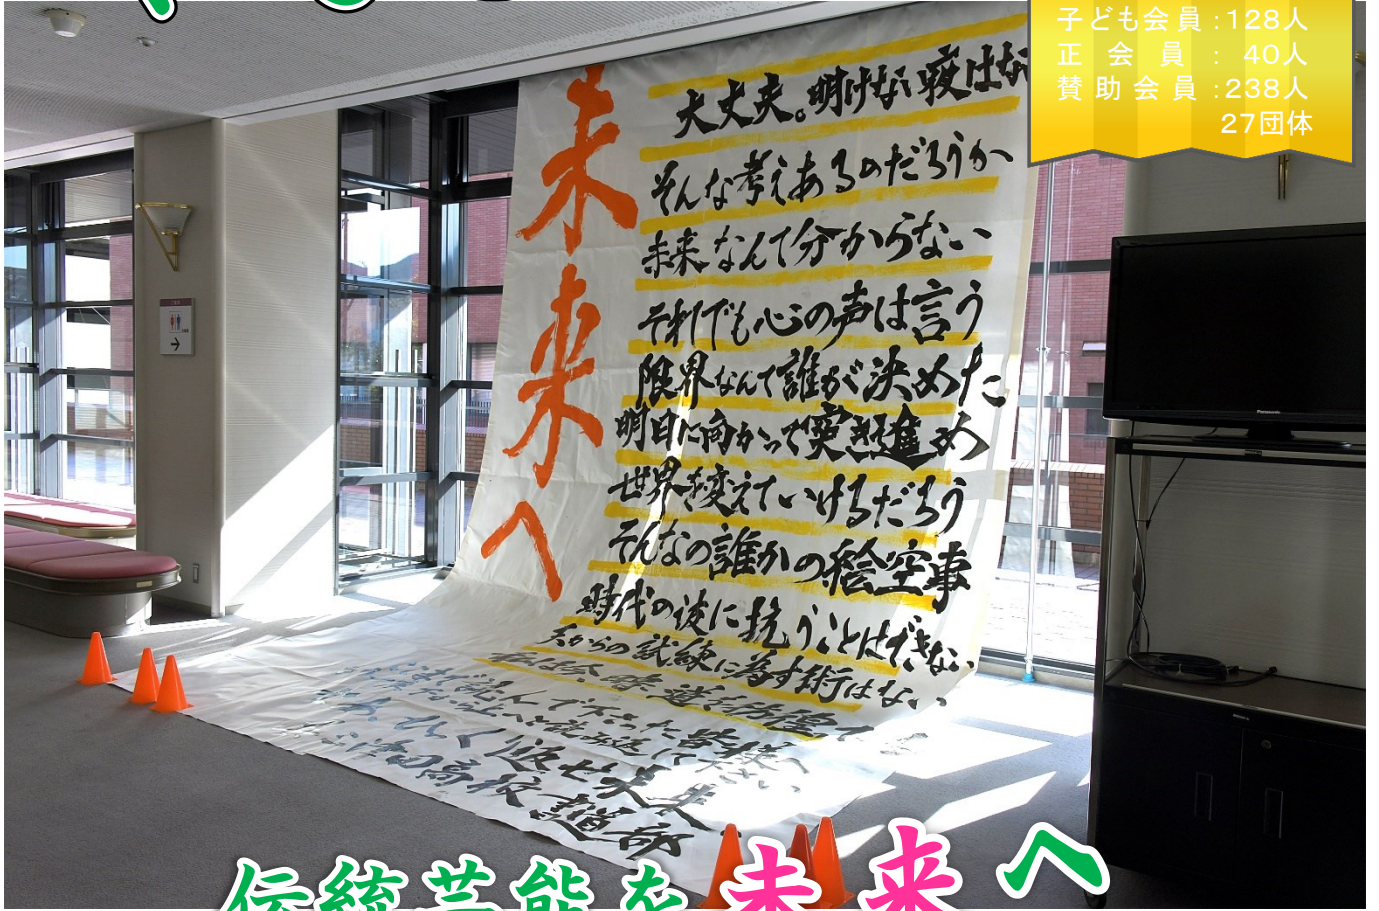 子ども会員:128人
正会員:40人
賛助会員:238人
27団体
未来へ
大丈夫。明けない夜はな
そんな考えあるのだろうか
未来なんて分からない
それでも心の声は言う
限界なんて誰が決めた
明日に向かって突き進め
世界を変えていけるだろう
そんなの誰かの絵空事
時代の波に抗うことはできない
天からの試練に為す術はない
高校書道部
伝統芸能を未来へ